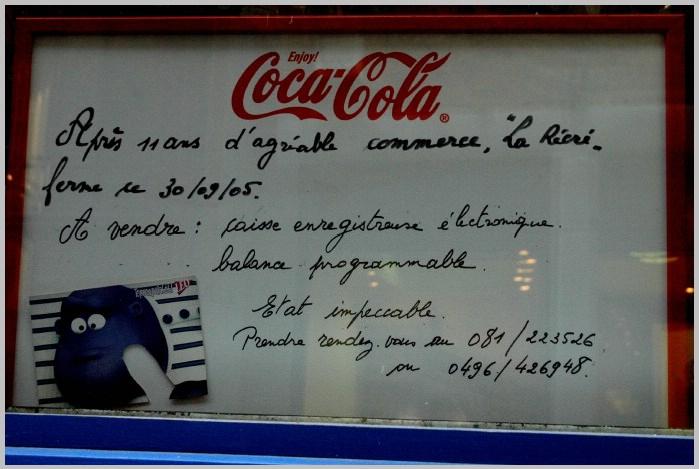 Enjoy!
Coca-Cola®
Après 11 ans d'agréable commerce, "La Récré"
ferme ce 30/09/05.
A vendre : caisse enregistreuse électronique.
balance programmable.
Etat impeccable.
Prendre rendez-vous au 081/223526
ou 0496/426948.